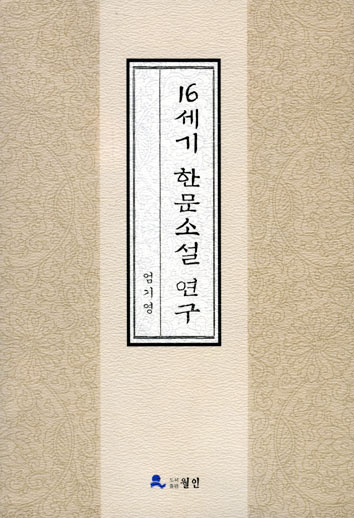 16세기 한문소설 연구
엄기영
도서
출판 월인